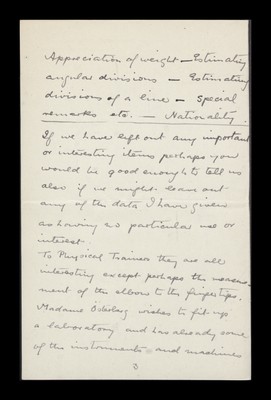 Appreciation of weight – Estimating
angular divisions – Estimating
divisions of a line – Special
remarks etc. – Nationality.
If we have left out any important
or interesting items perhaps you
would be good enough to tell us
also if we might leave out
any of the data I have given
as having no particular use or
interest.
To Physical Trainers they are all
interesting except perhaps the measure-
ment of the elbow to the fingertips.
Madame Österberg wishes to fit up
a laboratory and has already some
of the instruments and machines
3